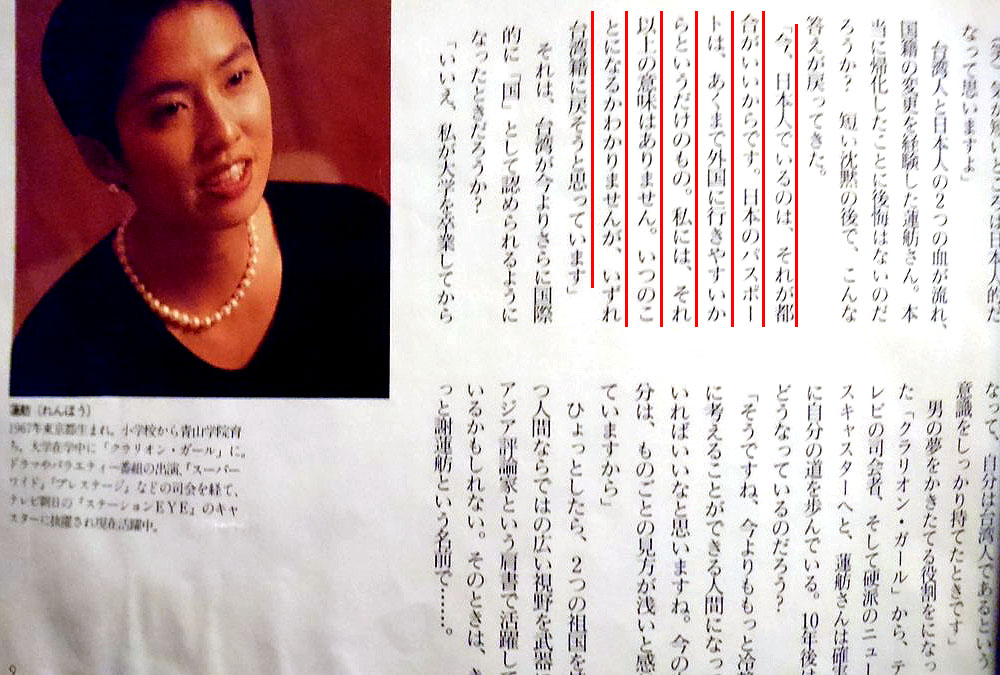 気が短いところは日本人的だ
なって思いますよ」
台湾人と日本人の2つの血が流れ、
国籍の変更を経験した蓮舫さん。本
当に帰化したことに後悔はないのだ
ろうか? 短い沈黙の後で、こんな
答えが戻ってきた。
「今、日本人でいるのは、それが都
合がいいからです。日本のパスポー
トは、あくまで外国に行きやすいか
らというだけのもの。私には、それ
以上の意味はありません。いつのこ
とになるかわかりませんが、いずれ
台湾籍に戻そうと思っています」
それは、台湾が今よりさらに国際
的に「国」として認められるように
なったときだろうか?
「いいえ、私が大学を卒業してから
なって、自分は台湾人であるという
意識をしっかり持てたときです」
男の夢をかきたてる役割をになっ
た「クラリオン・ガール」から、テ
レビの司会者、そして硬派のニュー
スキャスターへと、蓮舫さんは確実
に自分の道を歩んでいる。10年後は
どうなっているのだろう?
「そうですね、今よりももっと冷
に考えることができる人間になっ
いればいいなと思いますね。今の
分は、ものごとの見方が浅いと感
ていますから」
ひょっとしたら、2つの祖国を
つ人間ならではの広い視野を武器
アジア評論家という肩書で活躍して
いるかもしれない。そのときは、き
っと謝蓮舫という名前で……。
蓮舫（れんぽう）
1967年東京都生まれ。小学校から青山学院育
ち。大学在学中に「クラリオン・ガール」に。
ドラマやバラエティー番組の出演、「スーパー
ワイド」「プレステージ」などの司会を経て、
テレビ朝日の『ステーションEYE』のキャ
スターに抜擢され現在活躍中。
9